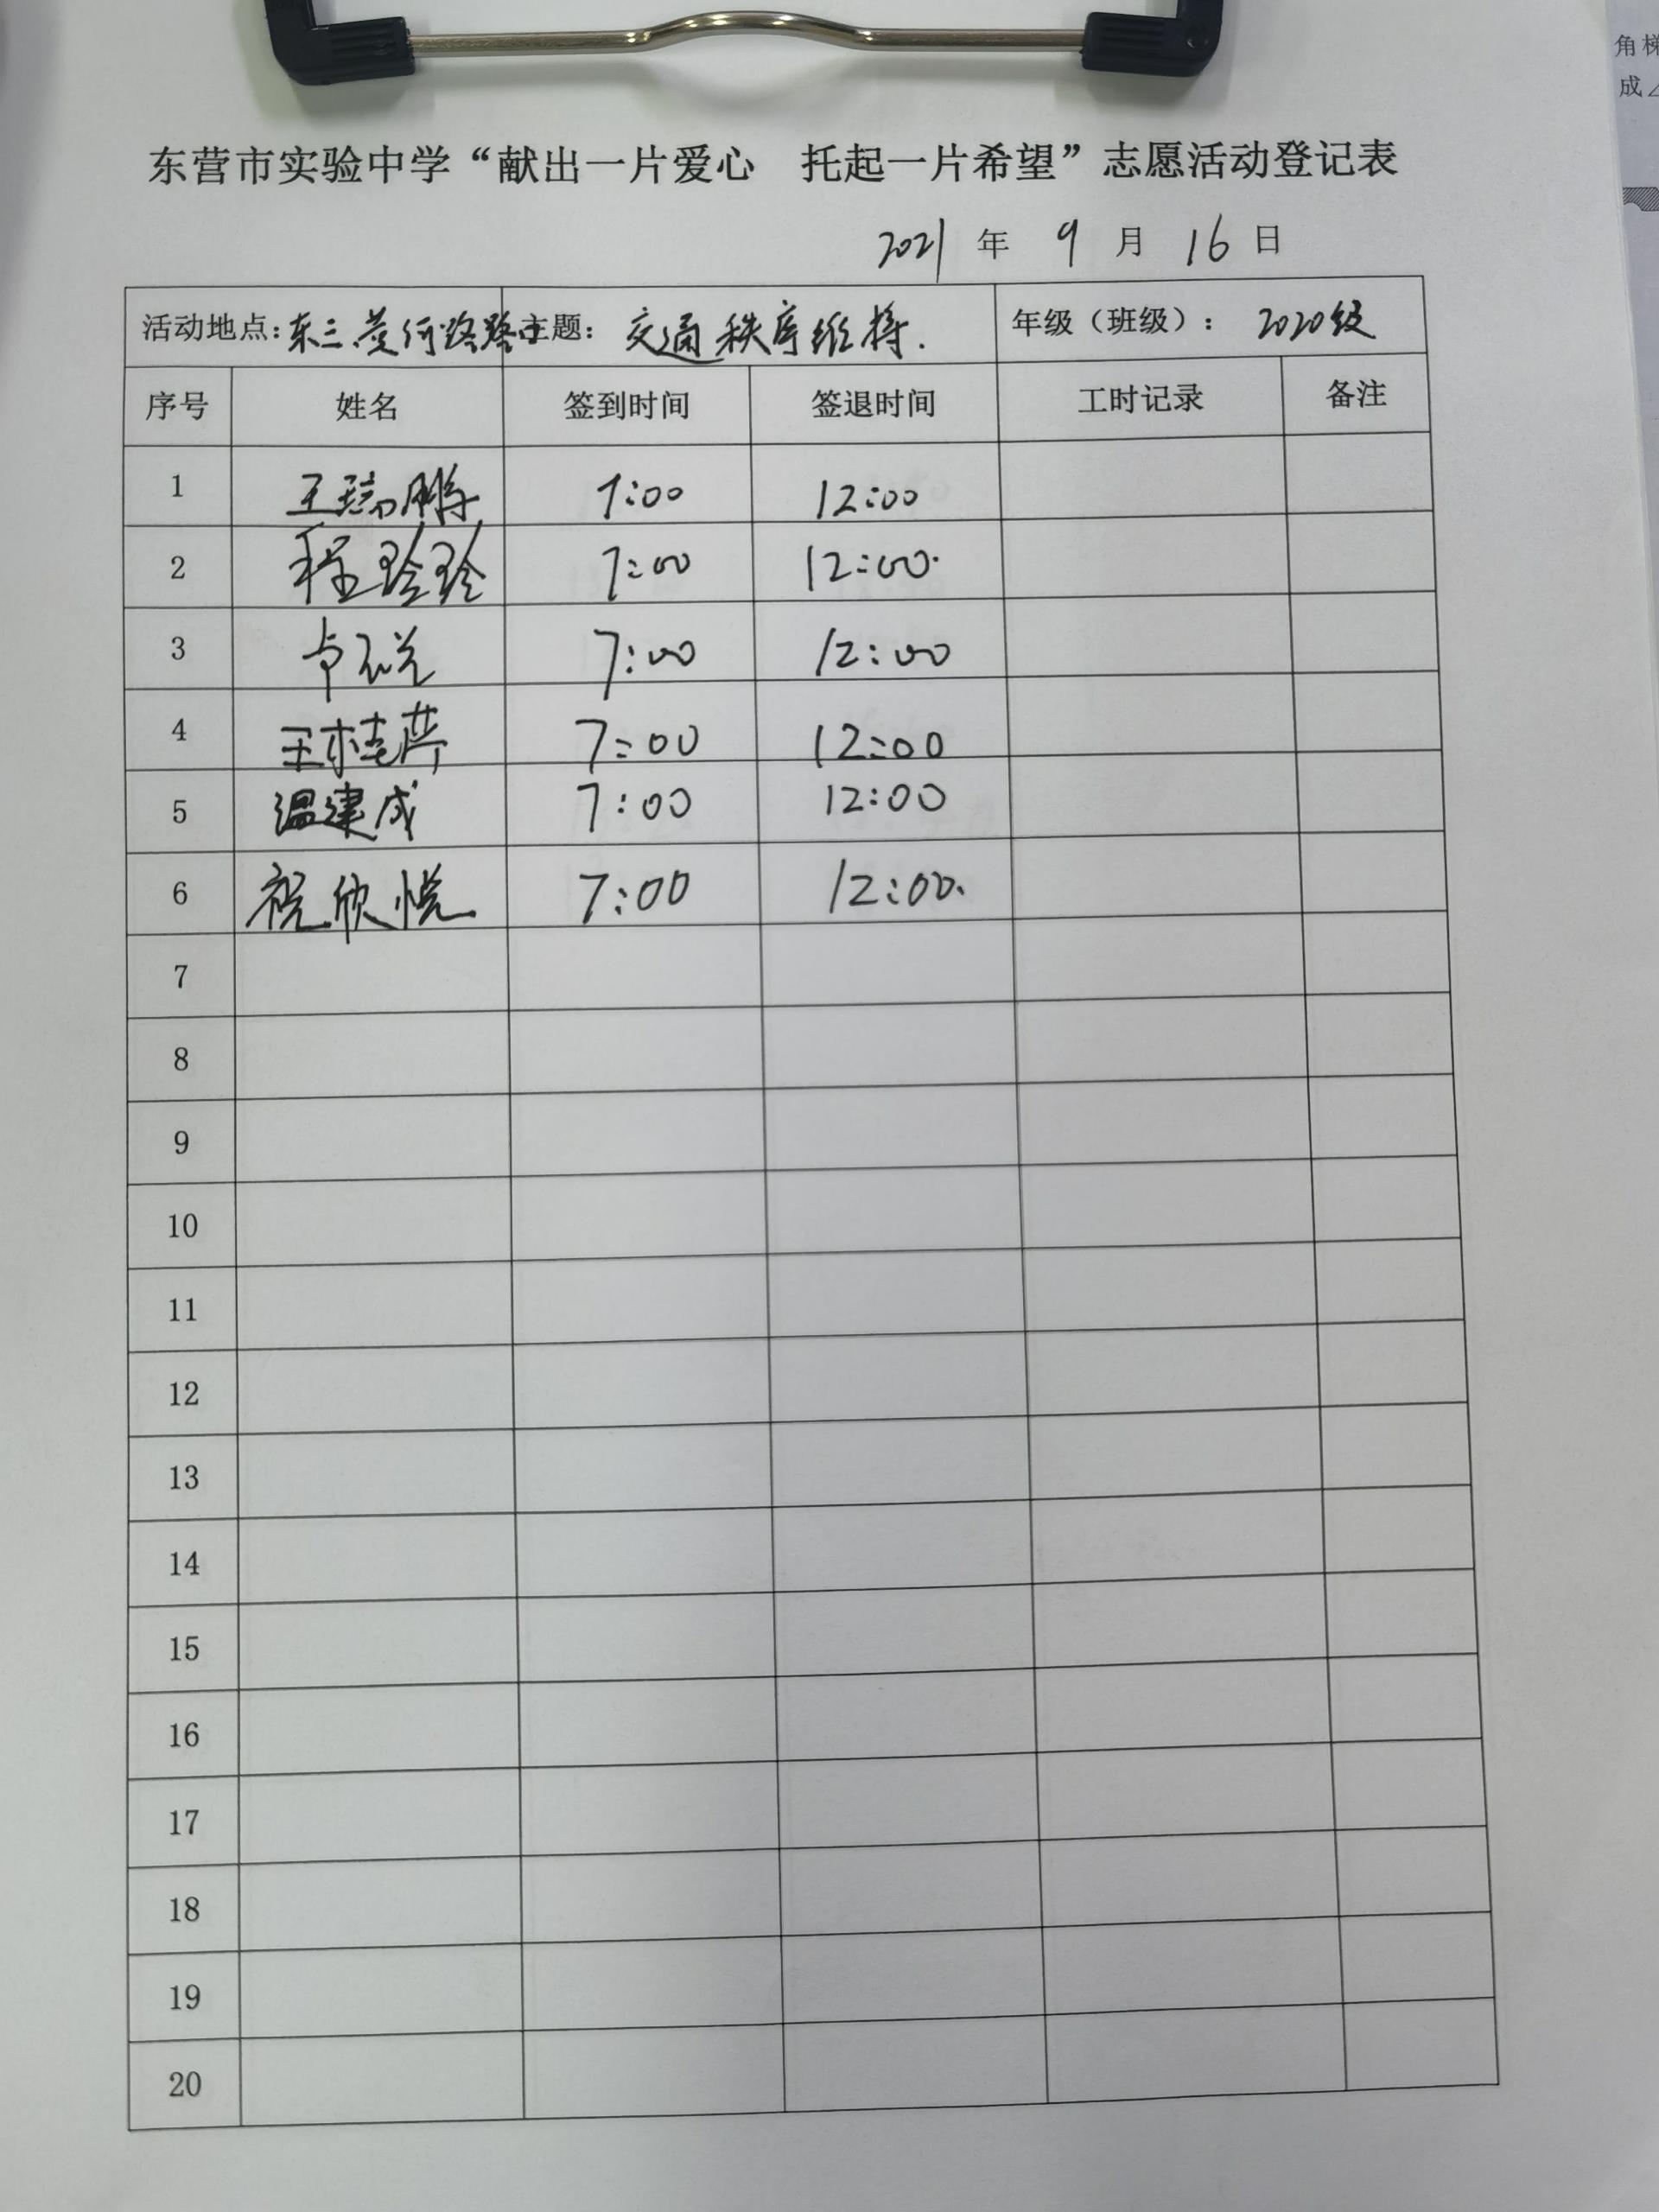 角梯
成∠
东营市实验中学“献出一片爱心 托起一片希望”志愿活动登记表
2021 年 9 月 16 日
活动地点：东三黄河路路口 主题： 交通秩序维持. 年级（班级）： 2020级
序号 姓名 签到时间 签退时间 工时记录 备注
1 王瑞鹏 7:00 12:00
2 程玲玲 7:00 12:00.
3 7:00 12:00
4 王桂芹 7:00 12:00
5 温建成 7:00 12:00
6 祝欣悦 7:00 12:00.
7
8
9
10
11
12
13
14
15
16
17
18
19
20